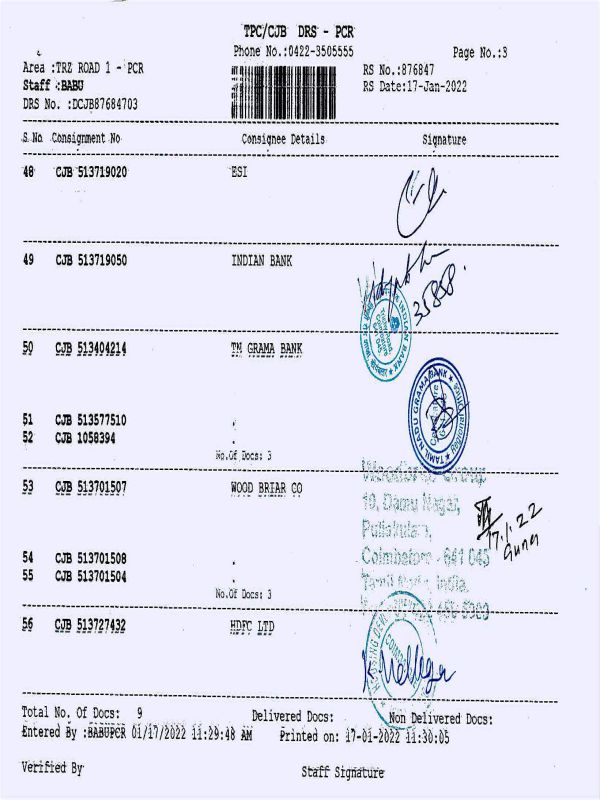 TPC/CJB DRS - PCR
Phone No.:0422-3505555
Page No.:3
Area :TRZ ROAD 1 - PCR
RS No.:876847
Staff :BABU
RS Date:17-Jan-2022
DRS No. :DCJB87684703
S No Consignment No Consignee Details Signature
48 CJB 513719020 ESI
49 CJB 513719050 INDIAN BANK
35858.
INDIAN BANK
50 CJB 513404214 TN GRAMA BANK
TAMIL NADU GRAMA BANK
51 CJB 513577510 .
52 CJB 1058394 .
No.Of Docs: 3
Group
53 CJB 513701507 WOOD BRIAR CO
10, Damu Nagar,
17.1.22
Puliakulam,
54 CJB 513701508 .
Coimbatore - 641 045
55 CJB 513701504 .
Tamil Nadu, India.
No.Of Docs: 3
56 CJB 513727432 HDFC LTD
Total No. Of Docs: 9 Delivered Docs: Non Delivered Docs:
Entered By :BABUPCR 01/17/2022 11:29:48 AM Printed on: 17-01-2022 11:30:05
Verified By Staff Signature